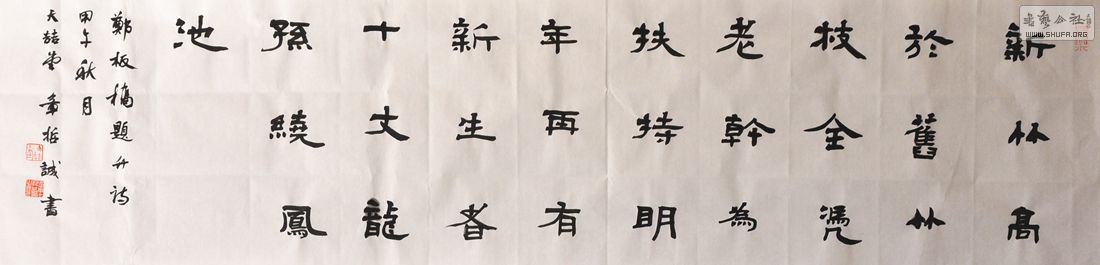 新竹高
於舊竹
枝全憑
老幹為
扶持明
年再有
新生者
十丈龍
孫繞鳳
池
鄭板橋題竹詩
甲午秋月
書
書藝公社
WWW.SHUFA.ORG